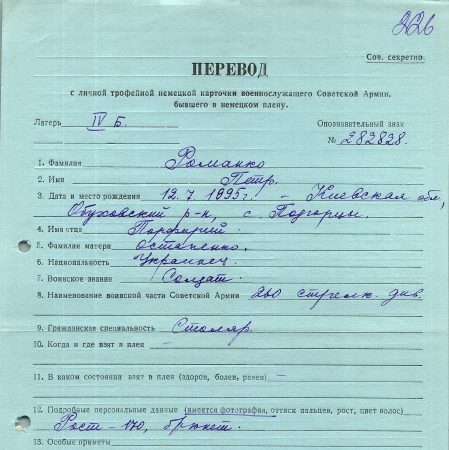 226
Сов. секретно.
ПЕРЕВОД
с личной трофейной немецкой карточки военнослужащего Советской Армии,
бывшего в немецком плену.
Лагерь IV Б.
Опознавательный знак
№ 282828.
1. Фамилия Романко
2. Имя Петр.
3. Дата и место рождения 12.7 1895г. - Киевская обл,
Обуховский р-н, с. Подгорцы.
4. Имя отца Порфирий
5. Фамилия матери Остапенко.
6. Национальность Украинец.
7. Воинское звание Солдат.
8. Наименование воинской части Советской Армии 260 стрелк. див.
9. Гражданская специальность Столяр.
10. Когда и где взят в плен —
11. В каком состоянии взят в плен (здоров, болен, ранен) —
12. Подробные персональные данные (имеется фотография, оттиск пальцев, рост, цвет волос)
Рост - 170, брюнет.
13. Особые приметы